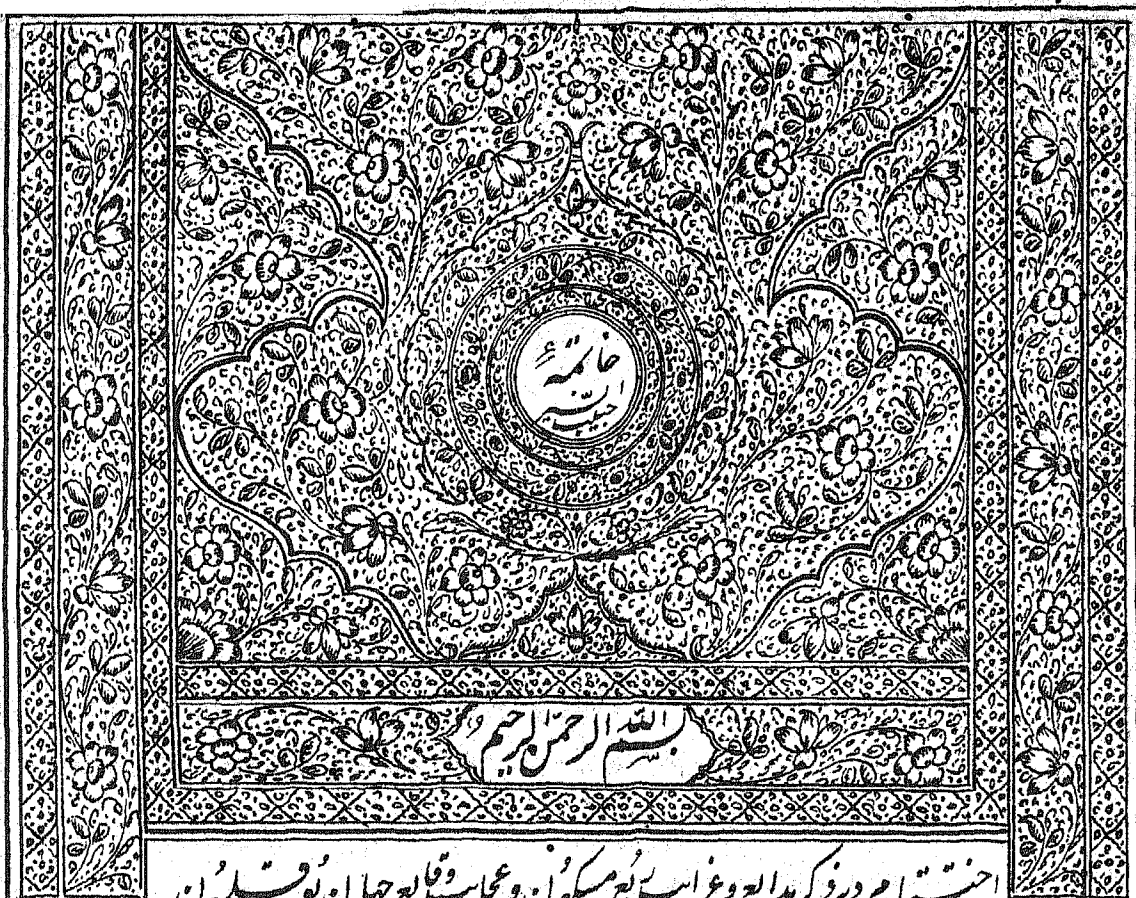 خاتمهٔ
بسم الله الرحمن الرحیم
اختتام در ذکر بدایع و غرایب ربع مسکون و عجایب وقایع جهان بوقلمون